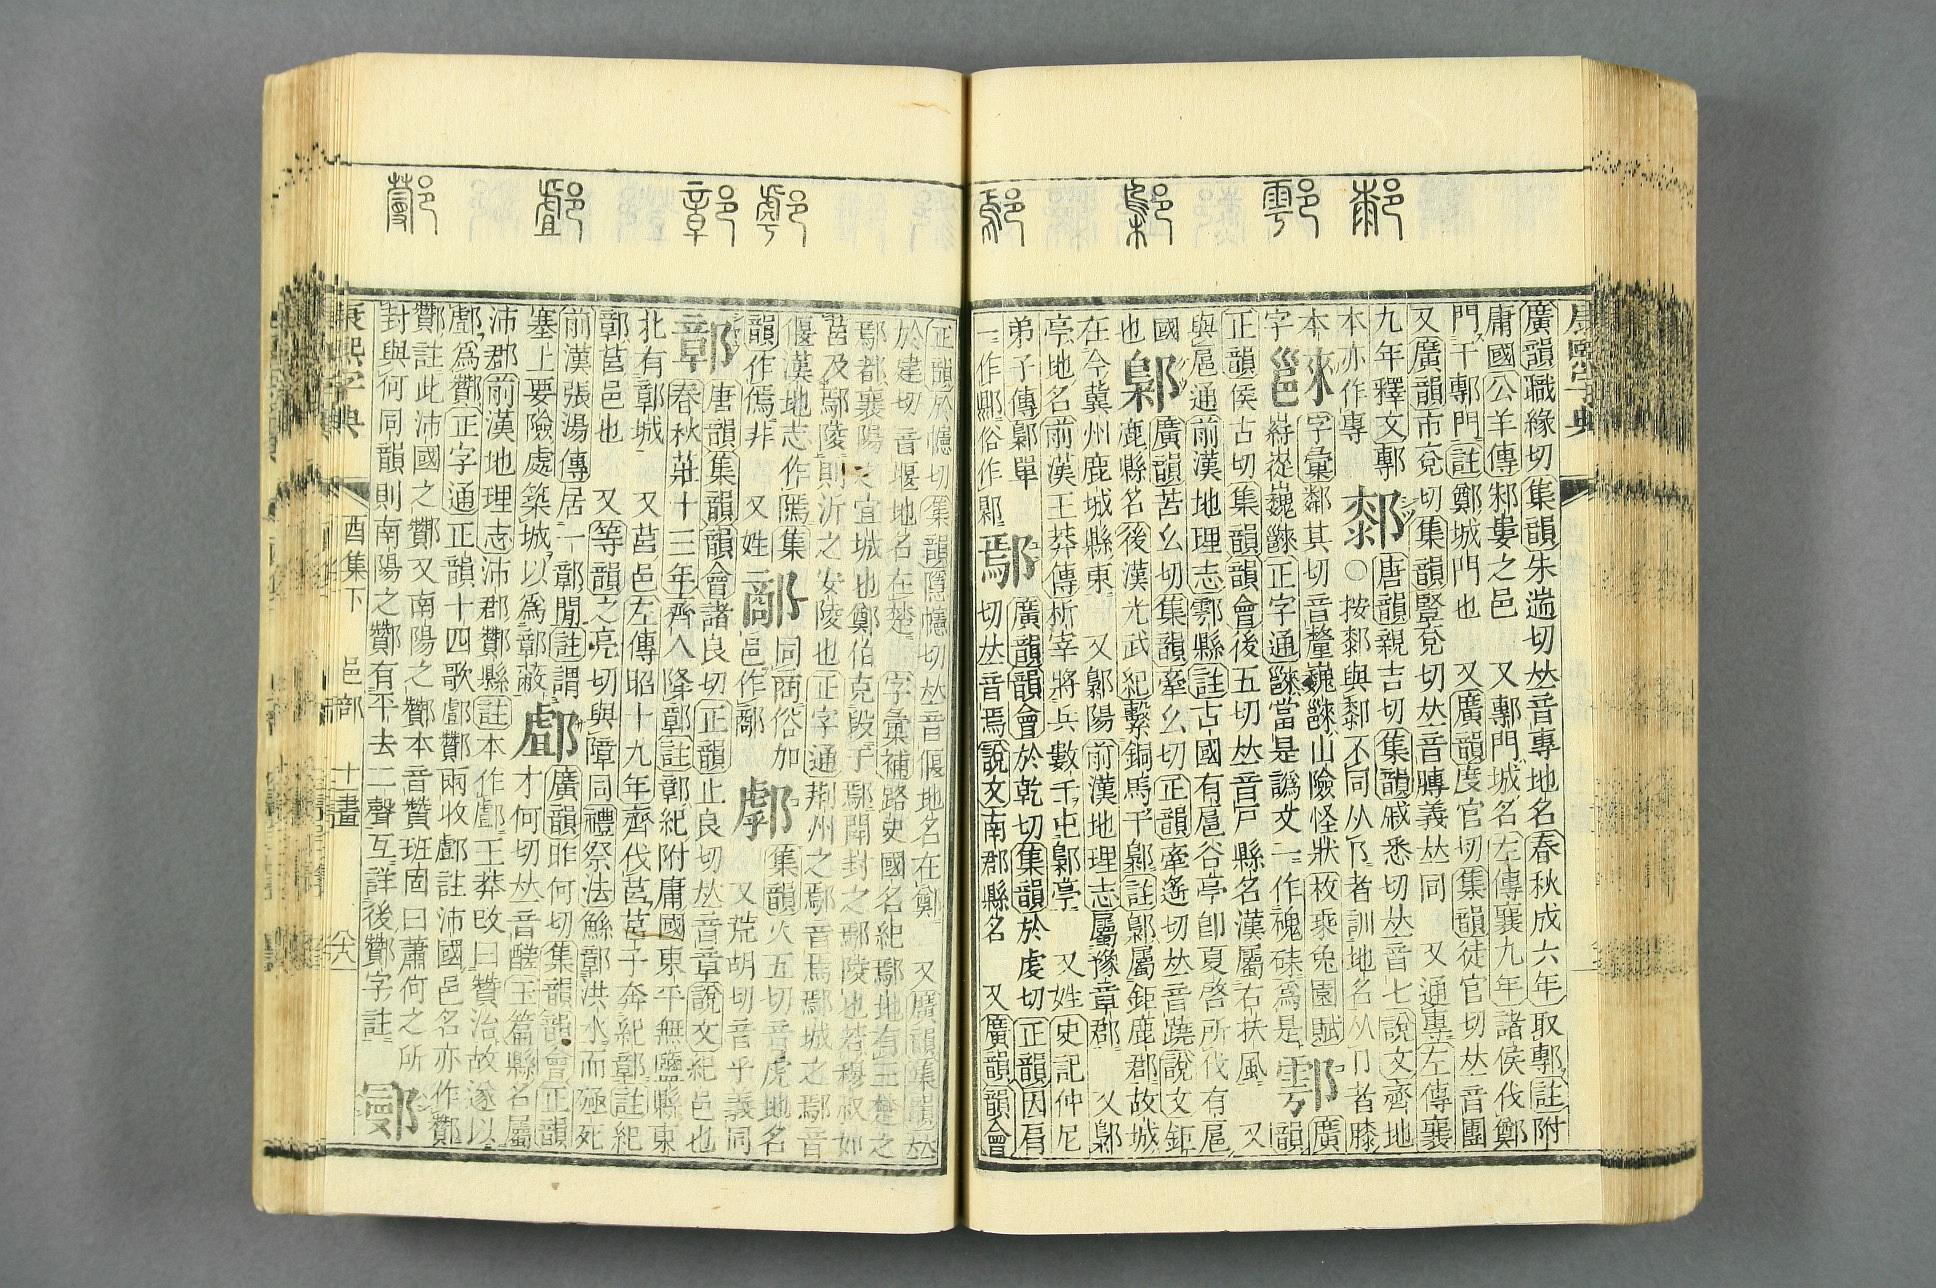 康熙字典
廣韻職緣切集韻朱遄切𠀤音專地名春秋成六年取鄟註附
庸國公羊傳邾婁之邑 又鄟門城名左傳襄九年諸侯伐鄭
門于鄟門註鄭城門也 又廣韻度官切集韻徒官切𠀤音團
又廣韻市兗切集韻豎兗切𠀤音膞義𠀤同 又通專左傳襄
九年釋文鄟
本亦作專 鄟唐韻親吉切集韻戚悉切𠀤音七說文齊地
〇按鄟與黎不同从卪者訓地名从卩者膝
本 字彙鄰其切音釐巍山險怪狀枚乘兔園賦
字 嵜從巍正字通當是譌文一作磈硊爲是 鄠廣韻
正韻侯古切集韻韻會後五切𠀤音戸縣名漢屬右扶風 又
與扈通前漢地理志鄠縣註古國有扈谷亭卽夏啓所伐有扈
國也 鄡廣韻苦幺切集韻牽幺切正韻牽遙切𠀤音蹺說文鉅
鹿縣名後漢光武犯繫銅馬于鄡註鄡屬鉅鹿郡故城
在今冀州鹿城縣東 又鄡陽前漢地理志屬豫章郡 又鄡
亭地名前漢王莽傳析宰將兵數千屯鄡亭 又姓史記仲尼
弟子傳鄡單
一作鄥俗作鄓 鄢廣韻韻會於乾切集韻於虔切正韻因肩
切𠀤音焉說文南郡縣名 又廣韻韻會
正韻於幰切集韻隱幰切𠀤音偃地名在鄭 又廣韻集韻𠀤
於建切音堰地名在楚 字彙補路史國名紀鄢地有三楚之
鄢都襄陽之宜城也鄭伯克段于鄢開封之鄢陵也若穆叔如
莒及鄢陵則沂之安陵也正字通荆州之鄢音焉鄢城之鄢音
偃漢地志作隖集
韻作傿非 又姓 鄗同商俗加邑作鄗 鄠集韻火五切音虎地名
又荒胡切音乎義同
鄣唐韻集韻韻會諸良切正韻止良切𠀤音章說文紀邑也
春秋莊十三年齊人降鄣註鄣紀附庸國東平無鹽縣東
北有鄣城 又莒邑左傳昭十九年齊伐莒莒子奔紀鄣註紀
鄣莒邑也 又等韻之亮切與障同禮祭法鯀鄣洪水而殛死
前漢張湯傳居一鄣閒註謂
塞上要險處築城以爲鄣蔽 䣜廣韻昨何切集韻韻會正韻
才何切𠀤音醝玉篇縣名屬
沛郡前漢地理志沛郡酇縣註本作䣜王莽改曰贊治故遂以
䣜爲酇正字通正韻十四歌䣜酇兩收䣜註沛國邑名亦作酇
酇註此沛國之酇又南陽之酇本音贊班固曰蕭何之所
封與何同韻則南陽之酇有平去二聲互詳後酇字註 鄤
康熙字典 酉集下 邑部 十一畫 六八